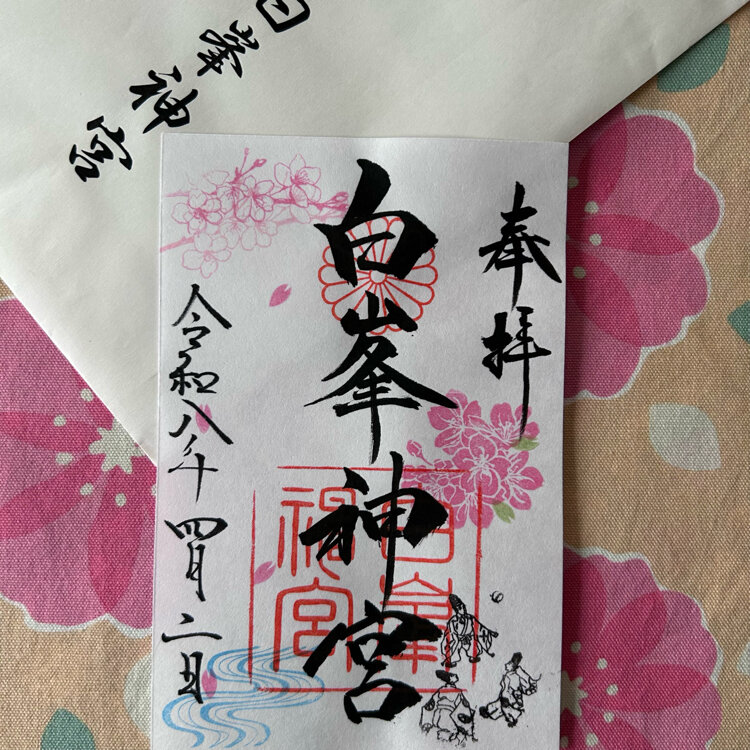 白峯神宮
奉拝
白峯神宮
白峯神宮
令和八年四月二日